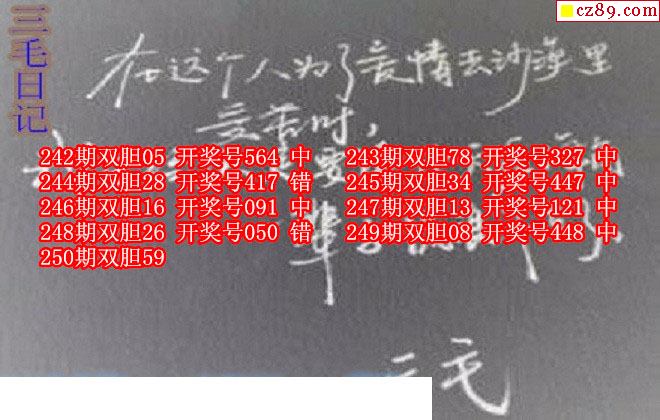 三毛日记
cz89.com
在这个人为了爱情去沙漠里
受苦时，
242期双胆05 开奖号564 中 243期双胆78 开奖号327 中
244期双胆28 开奖号417 错 245期双胆34 开奖号447 中
246期双胆16 开奖号091 中 247期双胆13 开奖号121 中
248期双胆26 开奖号050 错 249期双胆08 开奖号448 中
250期双胆59
三毛